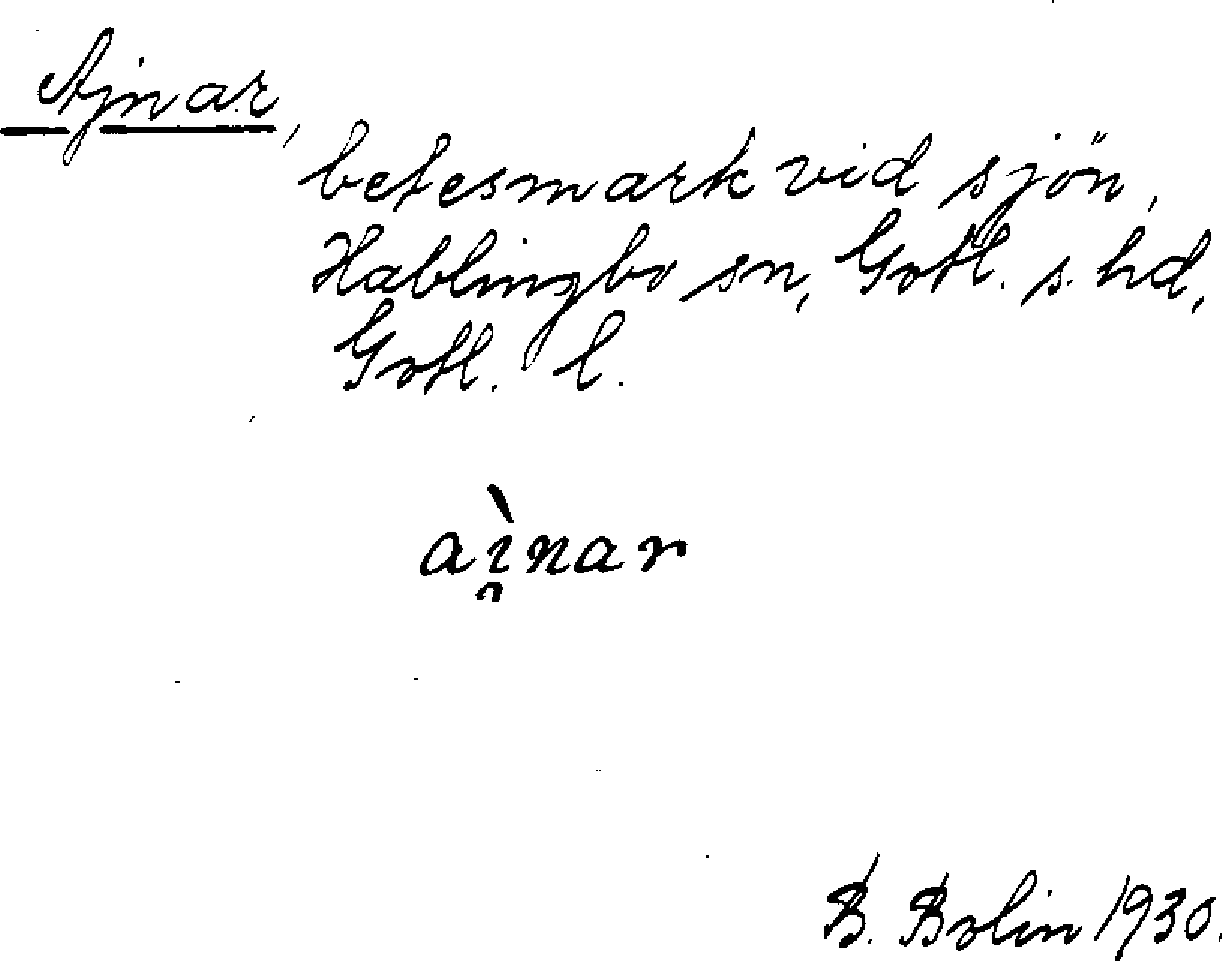 Ajnar,
betesmark vid sjön,
Hablingbo sn, Gotl. s. hd,
Gotl. l.
aì̯nar
B. Bolin 1930.